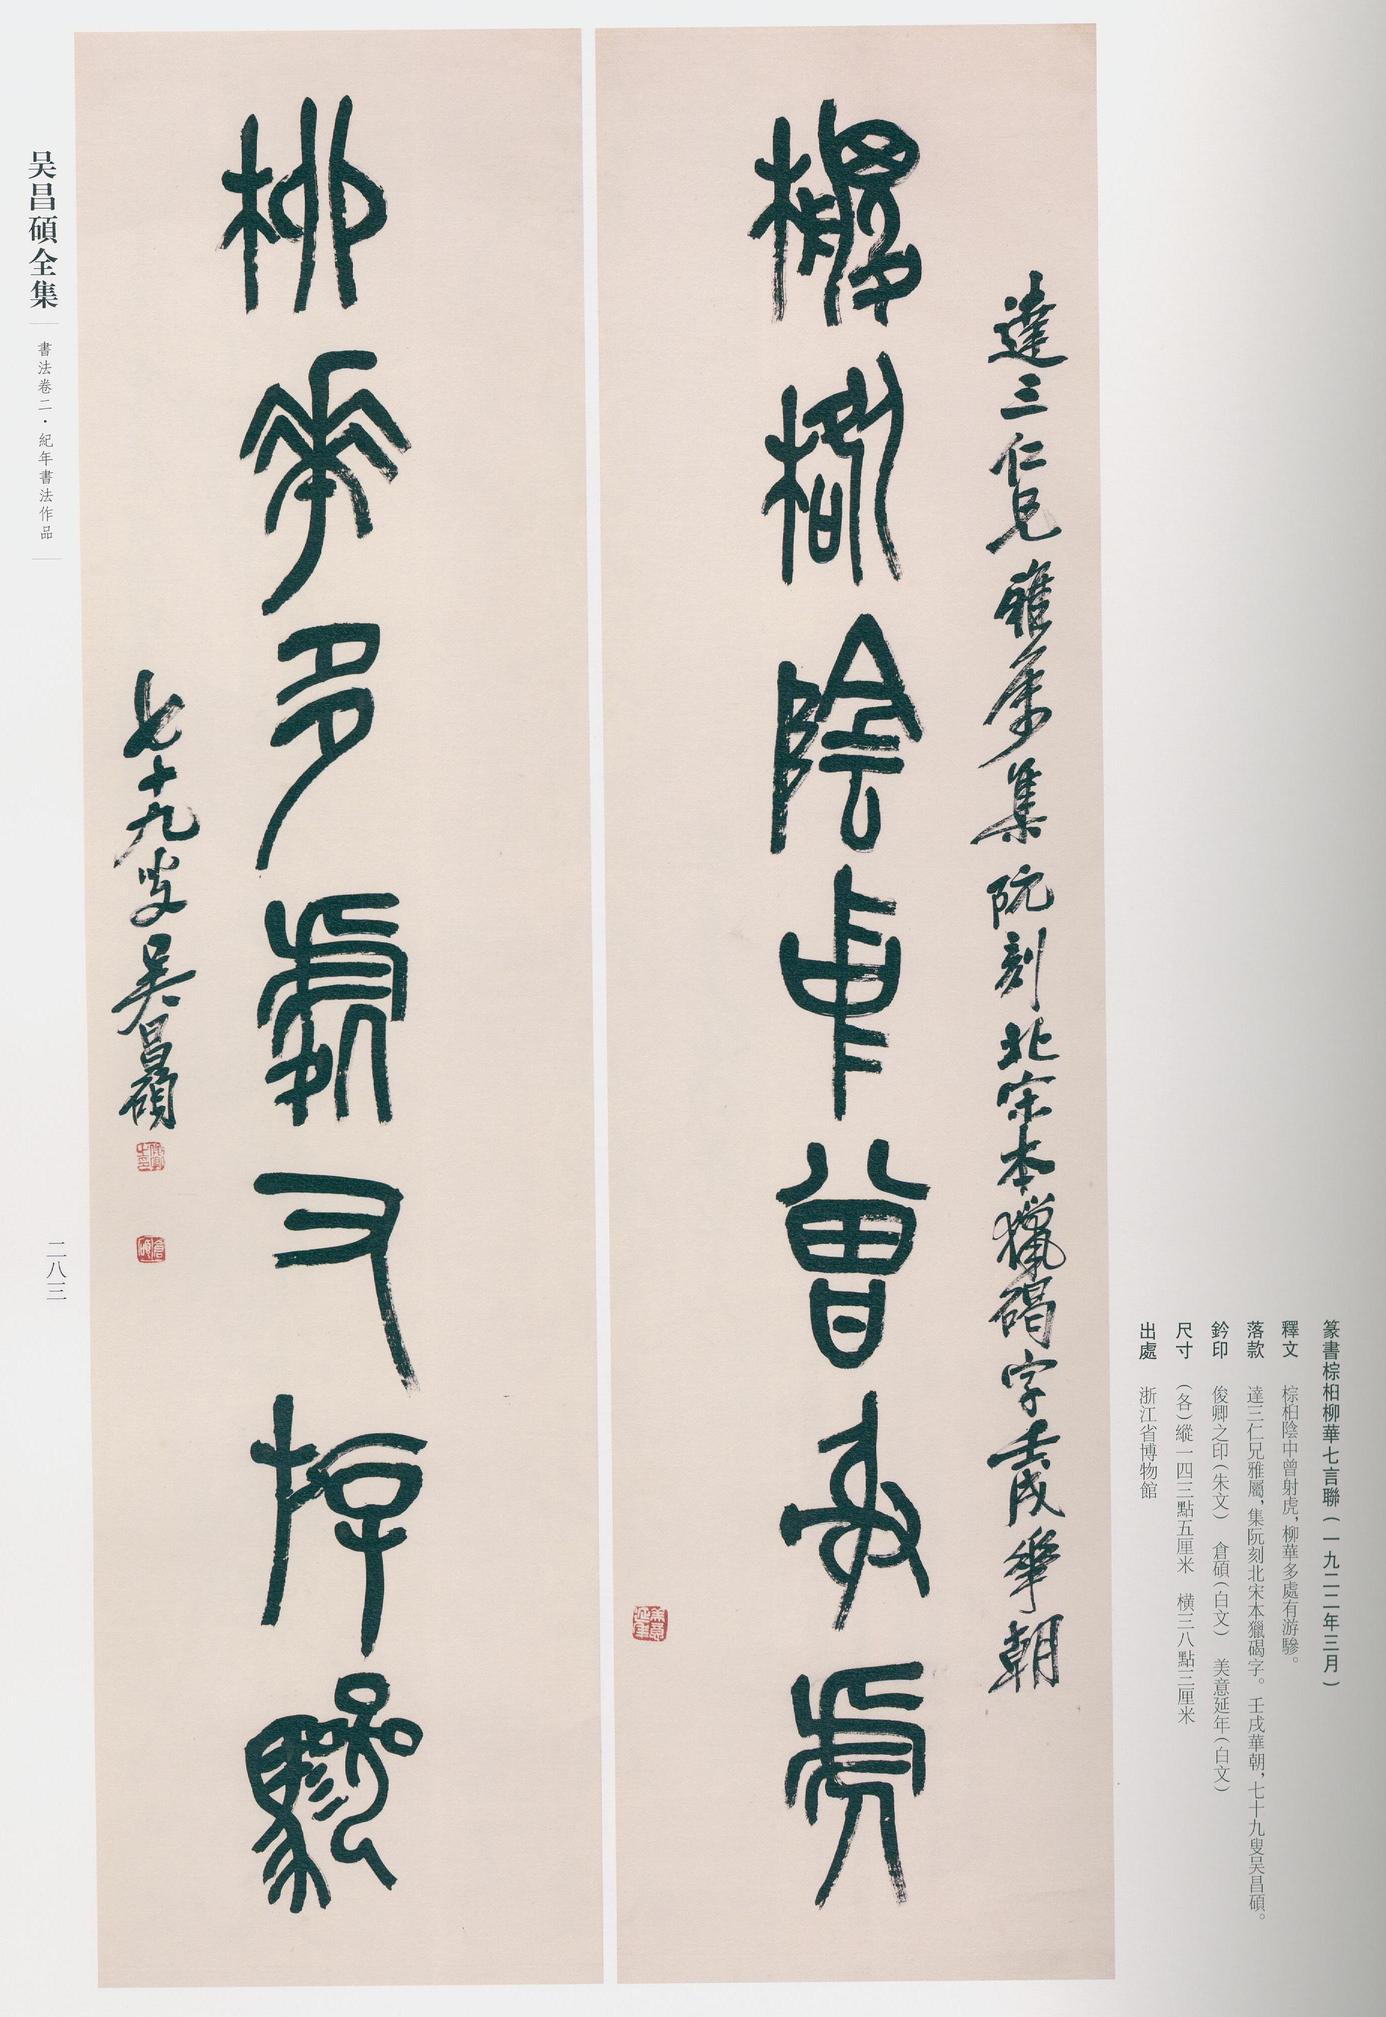 達三仁兄雅屬集阮刻北宋本獵碣字壬戌華朝
棕桕陰中曾射虎
美意延年
柳華多處有游驂
七十九叟吳昌碩
俊卿之印
倉碩
篆書棕桕柳華七言聯（一九二二年三月）
釋文　棕桕陰中曾射虎，柳華多處有游驂。
落款　達三仁兄雅屬，集阮刻北宋本獵碣字。壬戌華朝，七十九叟吴昌碩。
鈐印　俊卿之印（朱文）　倉碩（白文）　美意延年（白文）
尺寸　（各）縱一四三點五厘米　橫三八點三厘米
出處　浙江省博物館
吴昌碩全集
書法卷二·紀年書法作品
二八三